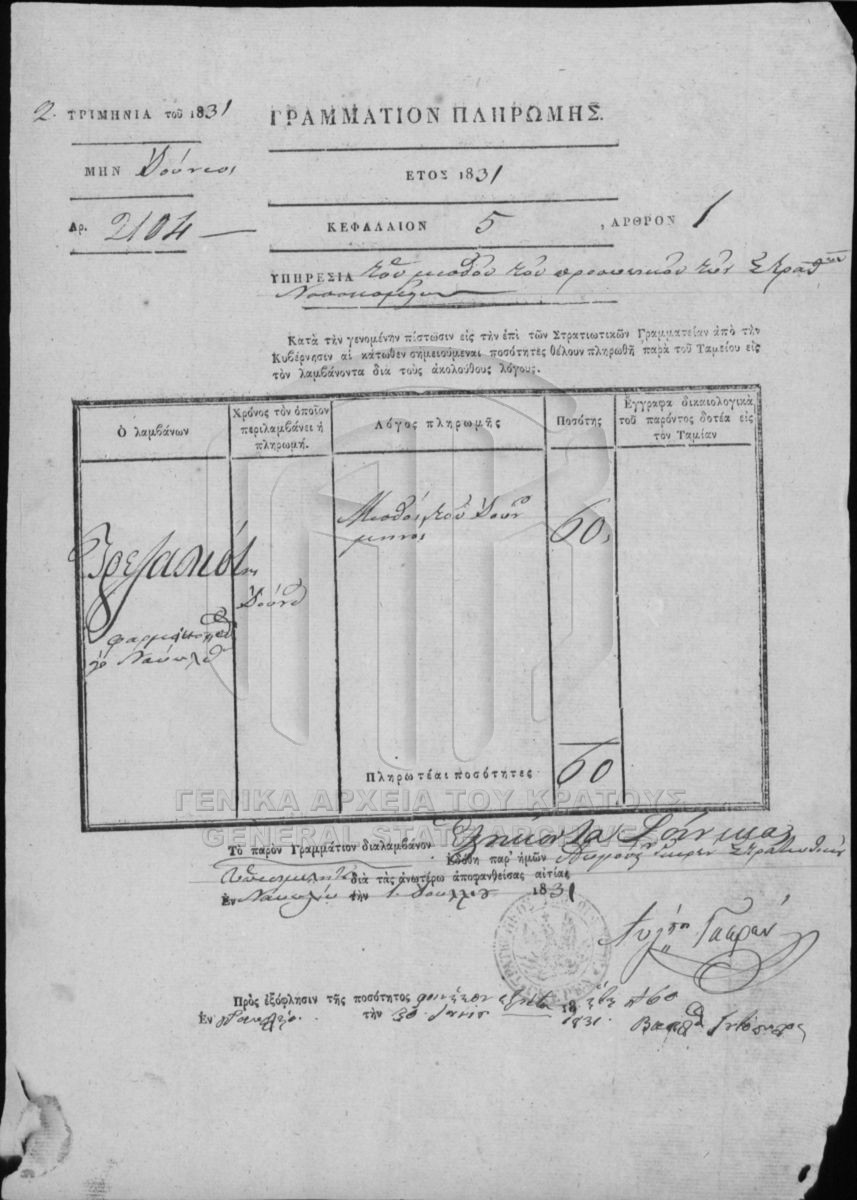 2. ΤΡΙΜΗΝΙΑ τοῦ 1831
ΓΡΑΜΜΑΤΙΟΝ ΠΛΗΡΩΜΗΣ.
ΜΗΝ Ἰούνιος
ΕΤΟΣ 1831
Αρ. 2104
ΚΕΦΑΛΑΙΟΝ 5 , ΑΡΘΡΟΝ 1
ΥΠΗΡΕΣΙΑ τοῦ μισθοῦ τοῦ προσωπικοῦ τῶν Στρατ
Νοσοκομείων
Κατὰ τὴν γενομένην πίστωσιν εἰς τὴν ἐπὶ τῶν Στρατιωτικῶν Γραμματείαν ἀπὸ τὴν
Κυβέρνησιν αἱ κάτωθεν σημειούμεναι ποσότητες θέλουν πληρωθῆ παρὰ τοῦ Ταμείου εἰς
τὸν λαμβάνοντα διὰ τοὺς ἀκολούθους λόγους.
Ὁ λαμβάνων
Χρόνος τὸν ὁποῖον
περιλαμβάνει ἡ
πληρωμή.
Λόγος πληρωμῆς
Ποσότης
Ἔγγραφα δικαιολογικὰ
τοῦ παρόντος δοτέα εἰς
τὸν Ταμίαν
Μισθὸς τοῦ Ἰουν
μηνός
60
Πληρωτέαι ποσότητες 60
ΓΕΝΙΚΑ ΑΡΧΕΙΑ ΤΟΥ ΚΡΑΤΟΥΣ
GENERAL STATE ARCHIVES
Τὸ παρὸν Γραμμάτιον διαλαμβάνον Ἑξήκοντα Φοίνικας
ἐδόθη παρ' ἡμῶν
διὰ τὰς ἀνωτέρω ἀποφανθείσας αἰτίας
Ἐν Ναυπλίῳ τὴν 1 Ἰουλίου 1831
Πρὸς ἐξόφλησιν τῆς ποσότητος 60
Ἐν Ναυπλίῳ τὴν 30 1831.